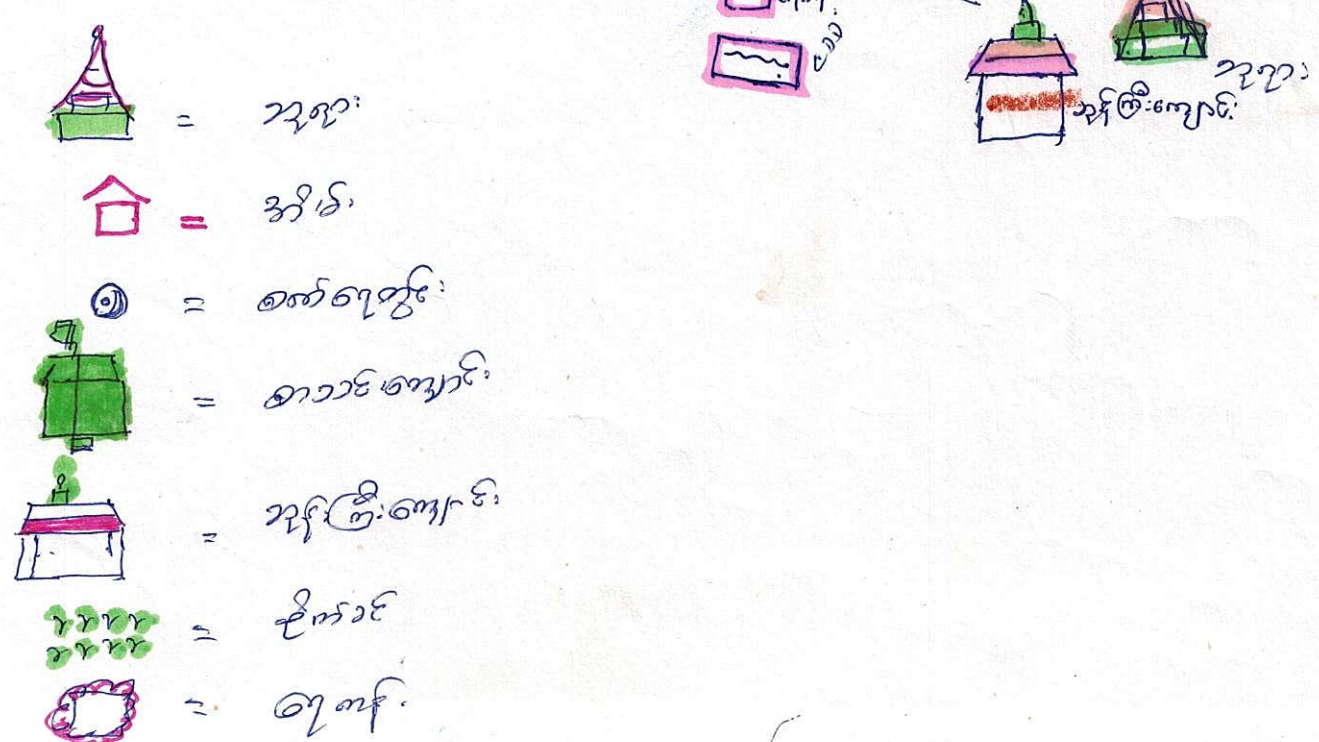 ဘုရား
ဘုန်းကြီးကျောင်း
= ဘုရား
= အိမ်
= စက်ရေတွင်း
= စာသင်ကျောင်း
= ဘုန်းကြီးကျောင်း
= စိုက်ခင်
= ရေကန်